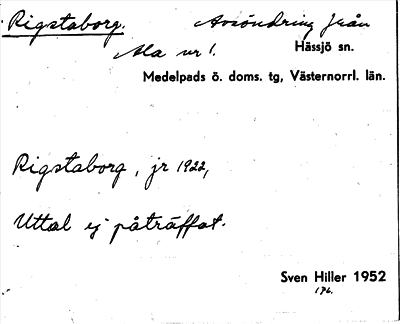 Rigstaborg. Avsöndring från
Ala nr 1. Hässjö sn.
Medelpads ö. doms. tg, Västernorrl. län.
Rigstaborg, jr 1922,
Uttal ej påträffat.
Sven Hiller 1952
176.